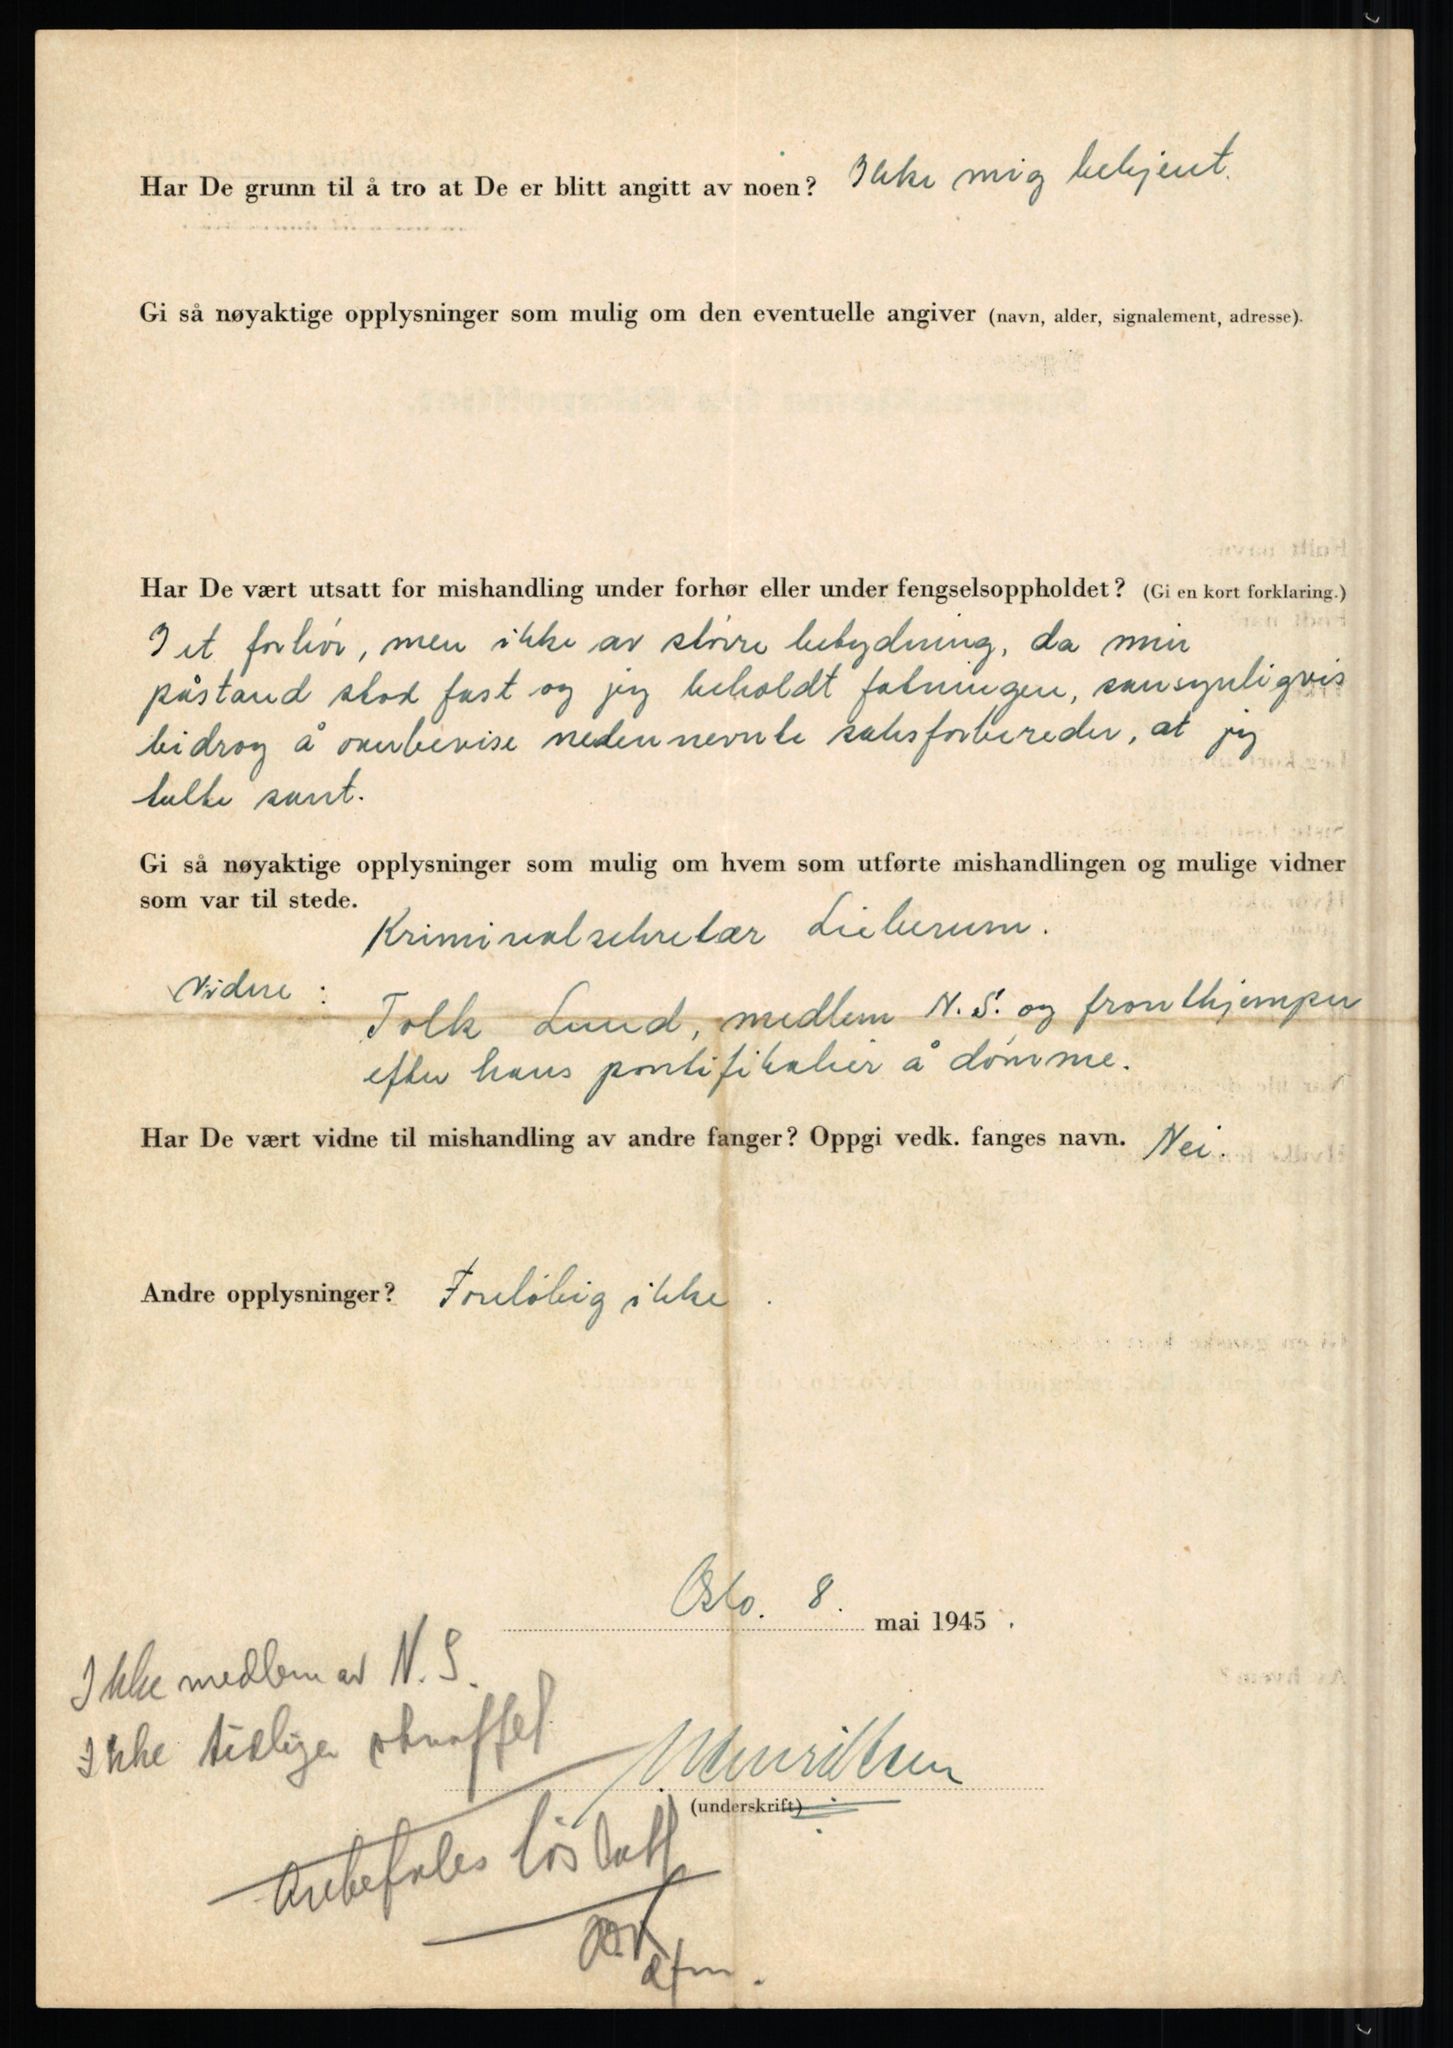 Har De grunn til å tro at De er blitt angitt av noen? Ikke mig bekjent.
Gi så nøyaktige opplysninger som mulig om den eventuelle angiver (navn, alder, signalement, adresse).
Har De vært utsatt for mishandling under forhør eller under fengselsoppholdet? (Gi en kort forklaring.)
I et forhör, men ikke av större betydning, da min
påstand stod fast og jeg beholdt fatningen, sansynligvis
bidrog å overbevise nedennevnte saksforbereder, at jeg
talte sant.
Gi så nøyaktige opplysninger som mulig om hvem som utførte mishandlingen og mulige vidner
som var til stede.
Kriminalsekretær Lieberum.
Vidne :
Tolk Lund, medlem N.S. og frontkjemper
efter hans pontifikalier å dömme.
Har De vært vidne til mishandling av andre fanger? Oppgi vedk. fanges navn. Nei.
Andre opplysninger? Forelöbig ikke.
Oslo. 8. mai 1945.
Ikke medlem av N.S.
Ikke tidligere straffet
Henriksen
(underskrift)
Anbefales löslatt